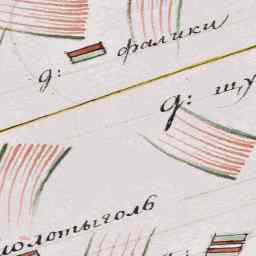 д: фалики
д: щу
молотыголь
д: